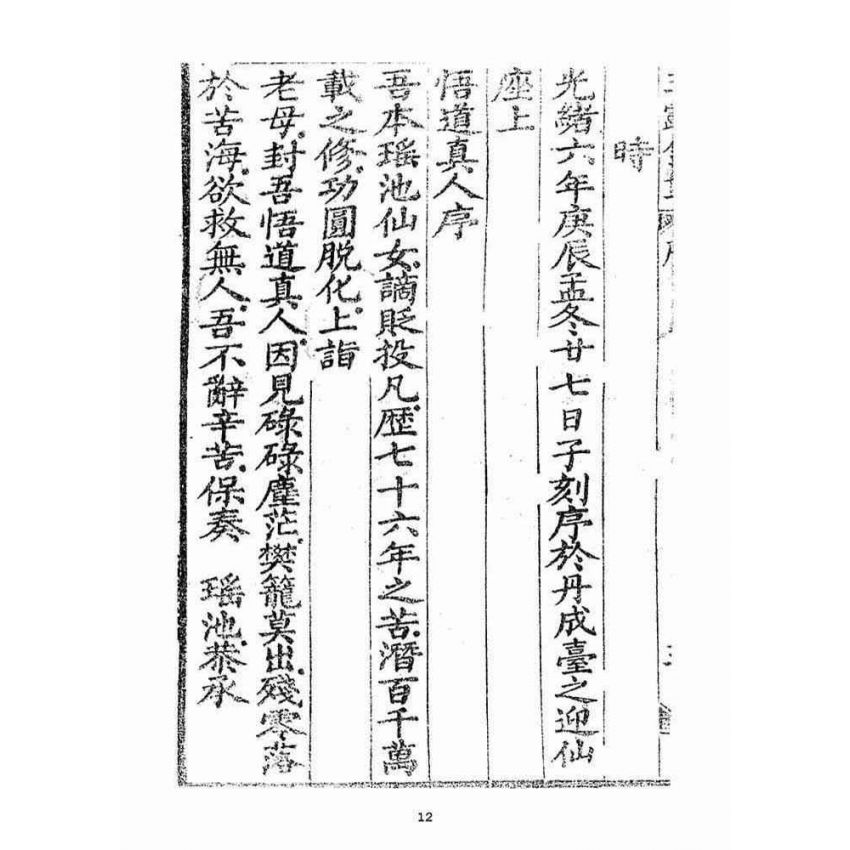 時
光緒六年庚辰孟冬廿七日子刻序於丹成臺之迎仙
座上
悟道真人序
吾本瑶池仙女。謫貶投凡。歴七十六年之苦。潛百千萬
載之修。功圓脱化。上詣
老母。封吾悟道真人。因見碌碌塵茫。樊籠莫出。殘零落
於苦海。欲救無人。吾不辭辛苦。保奏　瑶池。恭承
12